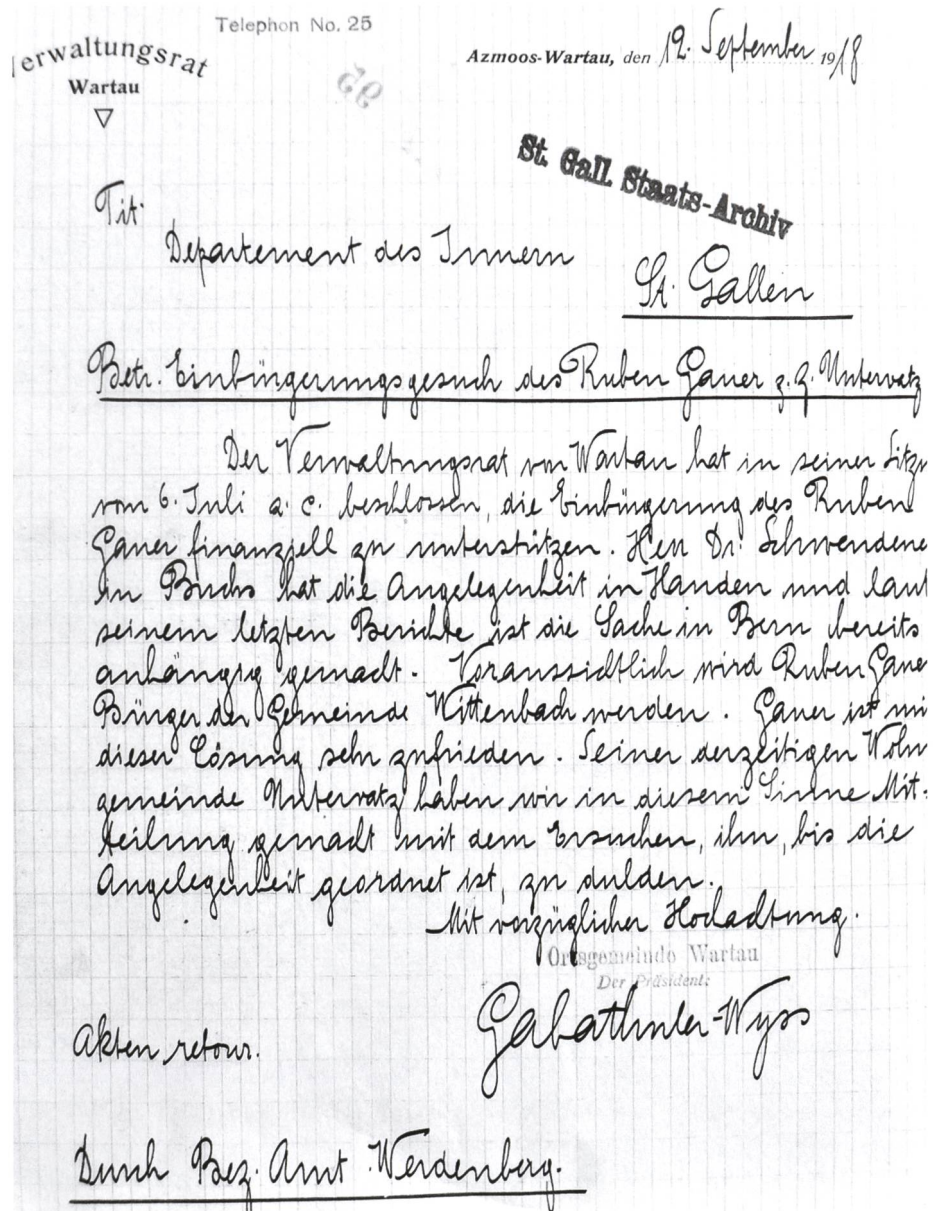 Telephon No. 25
Verwaltungsrat
Wartau
Azmoos-Wartau, den 12. September 1918
St. Gall. Staats-Archiv
Tit.
Departement des Innern
St. Gallen
Betr. Einbürgerungsgesuch des Ruben Ganer z. Z. Untervatz
Der Verwaltungsrat von Wartau hat in seiner Sitz
vom 6. Juli a. c. beschlossen, die Einbürgerung des Ruben
Ganer finanziell zu unterstützen. Herr Dr. Schwendene
in Buchs hat die Angelegenheit in Handen und laut
seinem letzten Berichte ist die Sache in Bern bereits
anhängig gemacht. Voraussichtlich wird Ruben Gane
Bürger der Gemeinde Wittenbach werden. Ganer ist mi
dieser Lösung sehr zufrieden. Seiner derzeitigen Wohn
gemeinde Untervatz haben wir in diesem Sinne Mit-
teilung gemacht mit dem Ersuchen, ihn, bis die
Angelegenheit geordnet ist, zu dulden.
Mit vorzüglicher Hochachtung.
Ortsgemeinde Wartau
Der Präsident:
Gabathuler-Wyss
Akten retour.
Durch Bez. Amt Werdenberg.